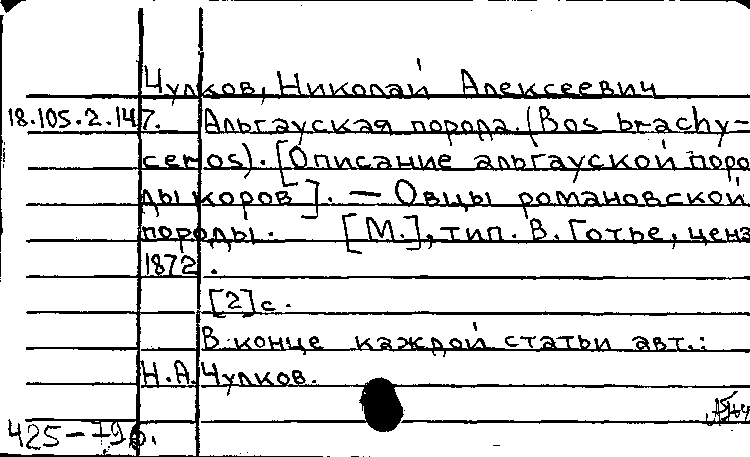 Чулков, Николай Алексеевич
18.105.2.147. Альгауская порода. (Bos brachy-
ceros). [Описание альгауской поро
ды коров]. — Овцы романовской
породы. [М.], тип. В. Готье, ценз
1872.
[2] с.
В конце каждой статьи авт.:
Н.А. Чулков.
425-79б.